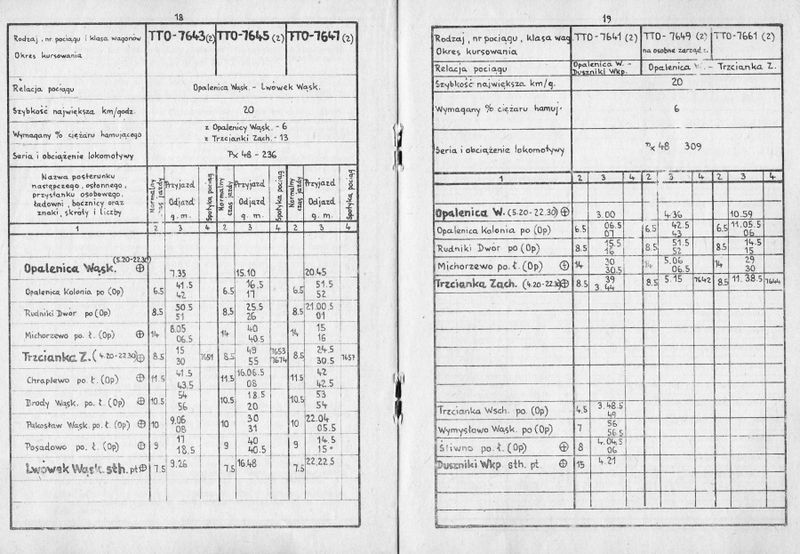 18
Rodzaj, nr pociągu i klasa wagonów TTO-7643(2) TTO-7645 (2) TTO-7647 (2)
Okres kursowania
Relacja pociągu Opalenica Wąsk. - Lwówek Wąsk.
Szybkość największa km/godz. 20
Wymagany % ciężaru hamującego z Opalenicy Wąsk. - 6
z Trzcianki Zach. - 13
Seria i obciążenie lokomotywy Px 48 - 236
Nazwa posterunku
następczego, osłonnego,
przystanku osobowego,
ładowni, bocznicy oraz
znaki, skróty i liczby
Normalny czas jazdy Przyjazd Odjazd g. m. Spotyka pociąg Normalny czas jazdy Przyjazd Odjazd g. m. Spotyka pociąg Normalny czas jazdy Przyjazd Odjazd g. m. Spotyka pociąg
1 2 3 4 2 3 4 2 3 4
(5.20-22.30)
Opalenica Wąsk. ⊕ 7.35 15.10 20.45
Opalenica Kolonia po (Op) 6.5 41.5 42 6.5 16.5 17 6.5 51.5 52
Rudniki Dwór po (Op) 8.5 50.5 51 8.5 25.5 26 8.5 21.00.5 01
Michorzewo po. ł. (Op) ⊕ 14 8.05 06.5 14 40 40.5 14 15 16
Trzcianka Z. (4.20-22.30) ⊕ 8.5 15 30 7651 8.5 49 55 7653 7674 8.5 24.5 30.5 7657
Chraplewo po. ł. (Op) ⊕ 11.5 41.5 43.5 11.5 16.06.5 08 11.5 42 42.5
Brody Wąsk. po. ł. (Op) ⊕ 10.5 54 56 10.5 18.5 20 10.5 53 54
Pakosław Wąsk. po. ł. (Op) ⊕ 10 9.06 08 10 30 31 10 22.04 05.5
Posadowo po. ł. (Op) ⊕ 9 17 18.5 9 40 40.5 9 14.5 15
Lwówek Wąsk. sth. pt ⊕ 7.5 9.26 7.5 16.48 7.5 22.22.5
19
Rodzaj, nr pociągu, klasa wag TTO-7641 (2) TTO-7649 (2) TTO-7661 (2)
Okres kursowania na osobne zarządz.
Relacja pociągu Opalenica W. - Duszniki Wkp. Opalenica W. - Trzcianka Z.
Szybkość największa km/g. 20
Wymagany % ciężaru hamuj. 6
Seria i obciążenie lokomotywy Px 48 309
1 2 3 4 2 3 4 2 3 4
Opalenica W. (5.20-22.30) ⊕ 3.00 4.36 10.59
Opalenica Kolonia po (Op) 6.5 06.5 07 6.5 42.5 43 6.5 11.05.5 06
Rudniki Dwór po (Op) 8.5 15.5 16 8.5 51.5 52 8.5 14.5 15
Michorzewo po. ł. (Op) ⊕ 14 30 30.5 14 5.06 06.5 14 29 30
Trzcianka Zach. (4.20-22.30) ⊕ 8.5 39 3.44 8.5 5.15 7642 8.5 11.38.5 7644
Trzcianka Wsch. po (Op) 4.5 3.48.5 49
Wymysłowo Wąsk. po (Op) 7 56 56.5
Śliwno po. ł. (Op) ⊕ 8 4.04.5 06
Duszniki Wkp sth. pt ⊕ 15 4.21